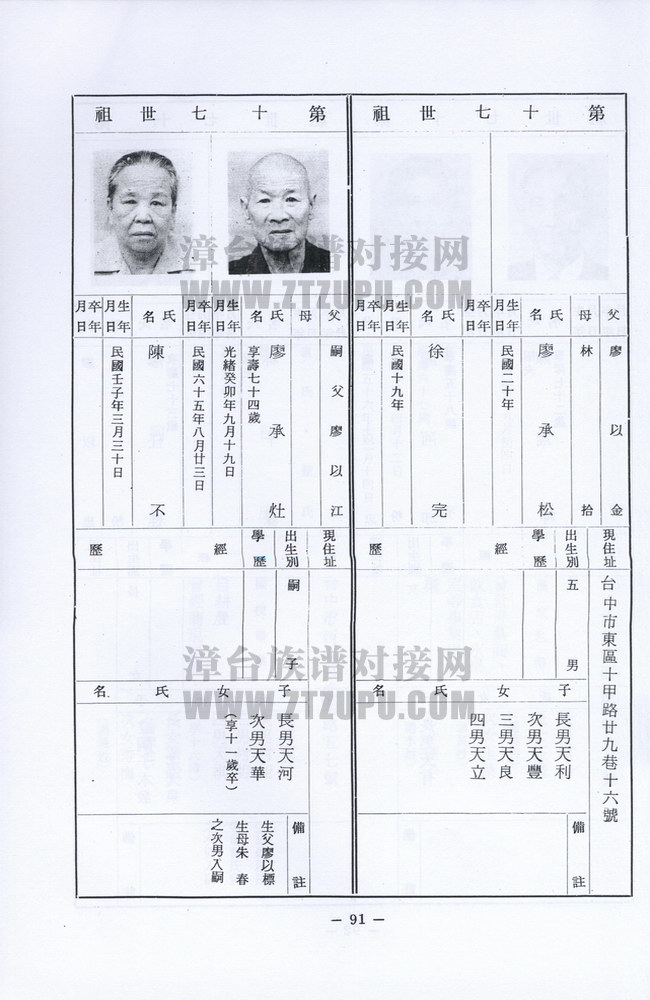 第十七世祖
父 廖以金
母 林拾
氏名 廖承松
生年月日 民國二十年
卒年月日
氏名 徐完
生年月日 民國十九年
卒年月日
現住址 台中市東區十甲路廿九巷十六號
出生別 五男
學歷
經歷
子女氏名
長男天利
次男天豐
三男天良
四男天立
備註
第十七世祖
父 嗣父廖以江
母
氏名 廖承灶
享壽七十四歲
生年月日 光緒癸卯年九月十九日
卒年月日 民國六十五年八月廿三日
氏名 陳不
生年月日 民國壬子年三月三十日
卒年月日
現住址
出生別 嗣子
學歷
經歷
子女氏名
長男天河
次男天華
(享十一歲卒)
備註
生父廖以標
生母朱春
之次男入嗣
漳台族谱对接网
WWW.ZTZUPU.COM
漳台族谱对接网
WWW.ZTZUPU.COM
— 91 —